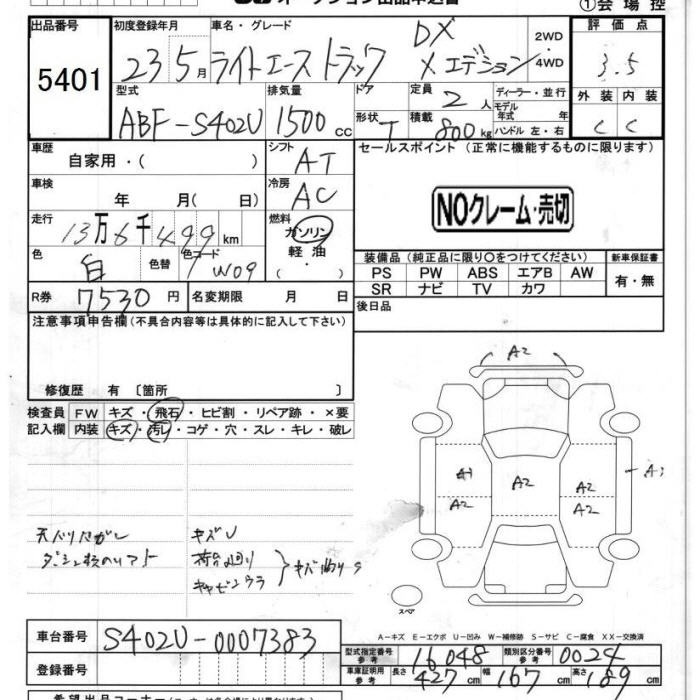 ①会場控
出品番号 5401
初度登録年月 23 5月
車名・グレード ライトエーストラック DX Xエディション
2WD
4WD
評価点 3.5
外装 C 内装 C
型式 ABF-S402U
排気量 1500cc
ドア
形状 T
定員 2人
積載 800kg
ディーラー・並行
モデル年式 年
ハンドル 左・右
車歴 自家用・( )
シフト AT
セールスポイント (正常に機能するものに限ります)
車検 年 月( 日)
冷房 AC
NOクレーム・売切
走行 13万6千499km
燃料 ガソリン
軽油
( ・ )
色 白 色替 色コード W09
装備品 (純正品に限り○をつけてください)
新車保証書
PS PW ABS エアB AW
SR ナビ TV カワ
有・無
R券 7530円 名変期限 月 日
後日品
注意事項申告欄(不具合内容等は具体的に記入して下さい)
修復歴 有 〔箇所 〕
検査員 FW キズ・飛石・ヒビ割・リペア跡・×要
記入欄 内装 キズ・汚レ・コゲ・穴・スレ・キレ・破レ
A2
A1
A2
A2
A2
A2
キズU
荷台廻り
キャビンウラ
スペア
A-キズ E-エクボ U-凹み W-補修跡 S-サビ C-腐食 XX-交換済
車台番号 S402U-0007383
型式指定番号 参考 16048 類別区分番号 参考 0024
登録番号
車庫証明用 参考 長さ 427cm 幅 167cm 高さ 189cm